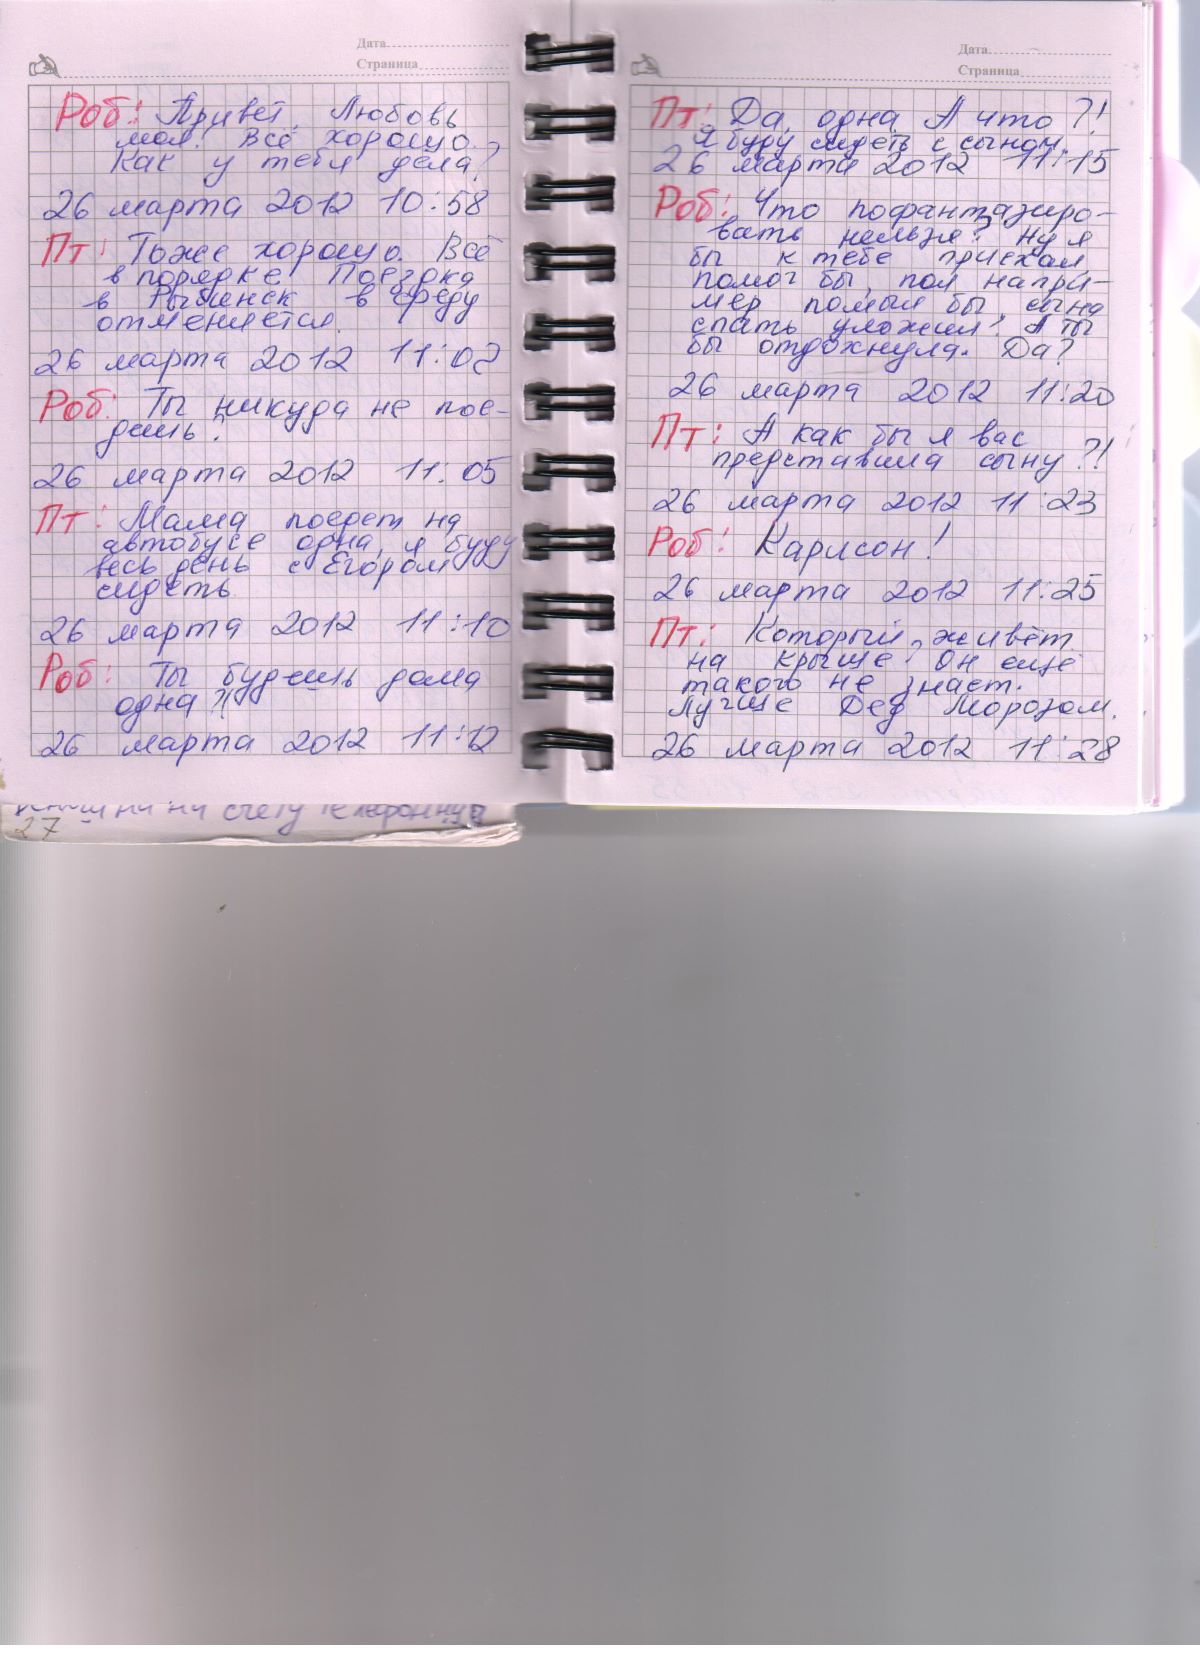 Дата
Страница
Роб: Привет, Любовь
моя! Всё хорошо.
Как у тебя дела?
26 марта 2012 10:58
Пт: Тоже хорошо. Всё
в порядке. Поездка
в Рыбинск в среду
отменяется.
26 марта 2012 11:02
Роб: Ты никуда не пое-
дешь?
26 марта 2012 11:05
Пт: Мама поедет на
автобусе одна, я буду
весь день с Егором
сидеть.
26 марта 2012 11:10
Роб: Ты будешь дома
одна?!
26 марта 2012 11:12
на счету
27
Дата
Страница
Пт: Да, одна. А что?!
Я буду сидеть с сыном.
26 марта 2012 11:15
Роб: Что пофантазиро-
вать нельзя? Ну я
бы к тебе приехал
помог бы, пол напри-
мер помыл бы, сына
спать уложил! А ты
бы отдохнула. Да?
26 марта 2012 11:20
Пт: А как бы я вас
представила сыну?!
26 марта 2012 11:23
Роб: Карлсон!
26 марта 2012 11:25
Пт: Который живёт
на крыше? Он ещё
такого не знает.
Лучше Дед Морозом.
26 марта 2012 11:28